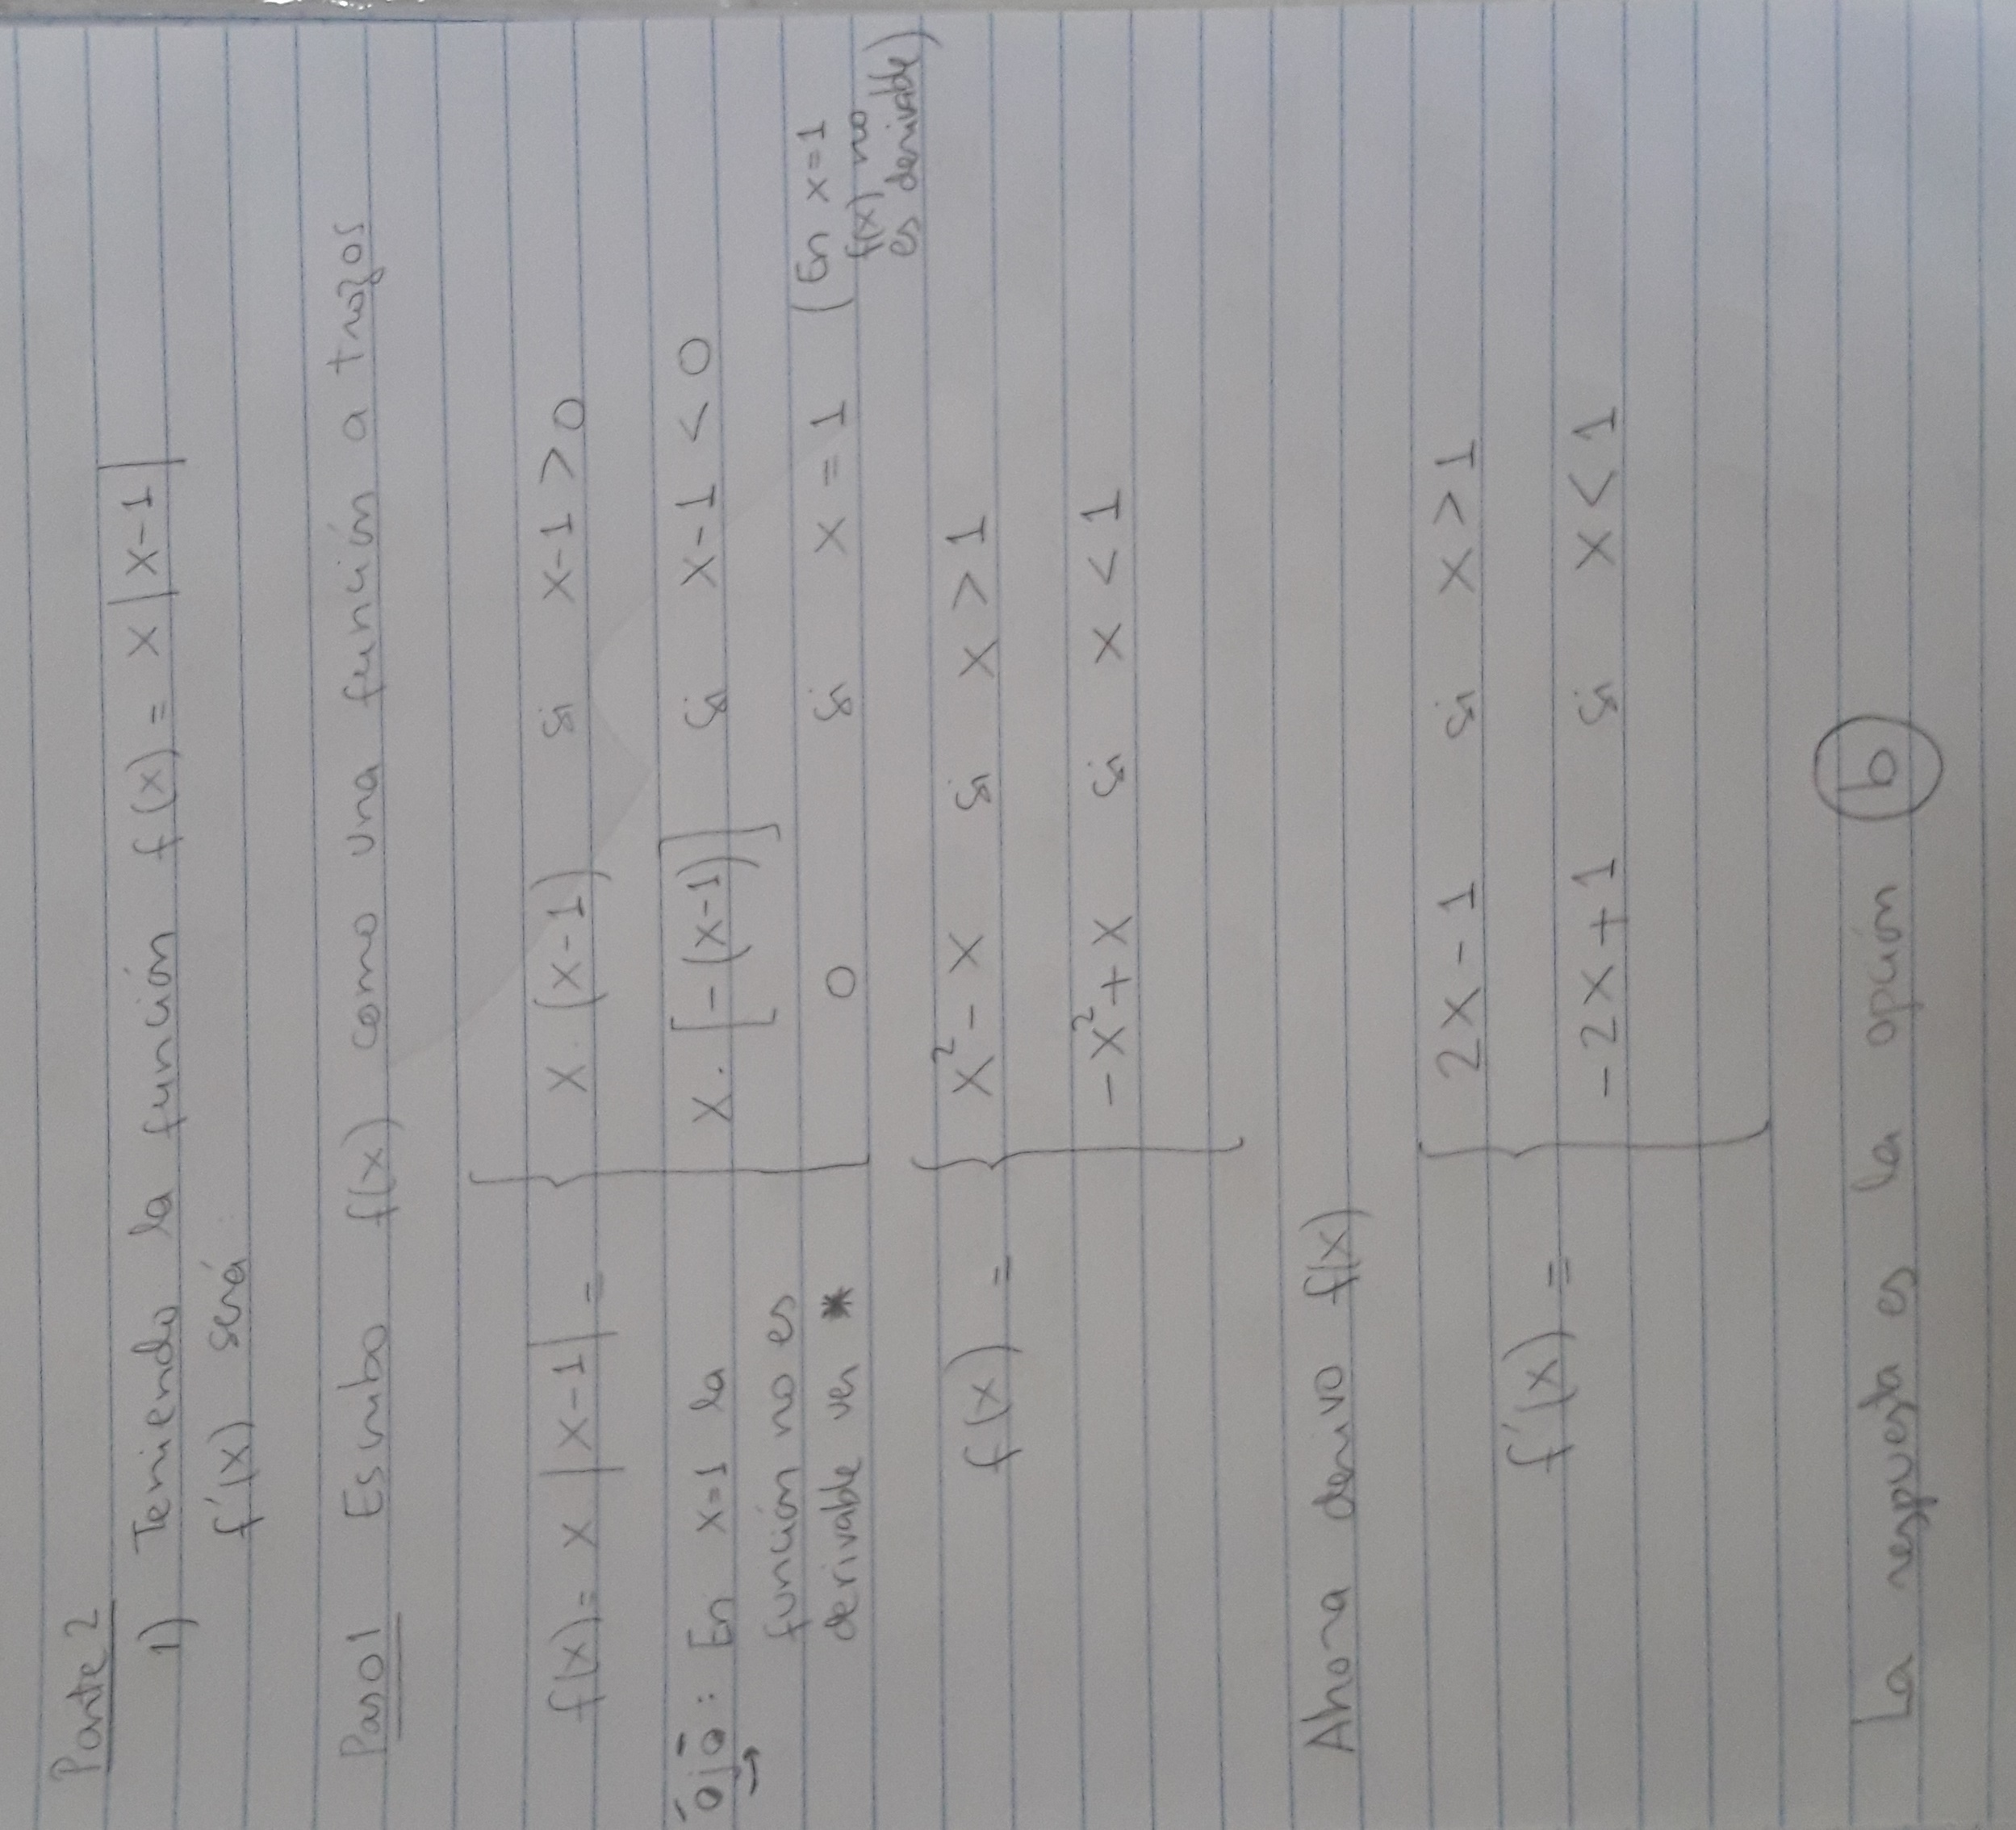 Parte 2
1) Teniendo la función f(x) = x |x-1|
f'(x) será
Paso 1 Escribo f(x) como una función a trozos
f(x) = x |x-1| = { x · (x-1) si x-1 > 0
x · [-(x-1)] si x-1 < 0
0 si x = 1 (En x=1
f(x) no
es derivable)
ojo: En x=1 la
función no es
derivable ver *
f(x) = { x² - x si x > 1
-x² + x si x < 1
Ahora derivo f(x)
f'(x) = { 2x - 1 si x > 1
-2x + 1 si x < 1
La respuesta es la opción b